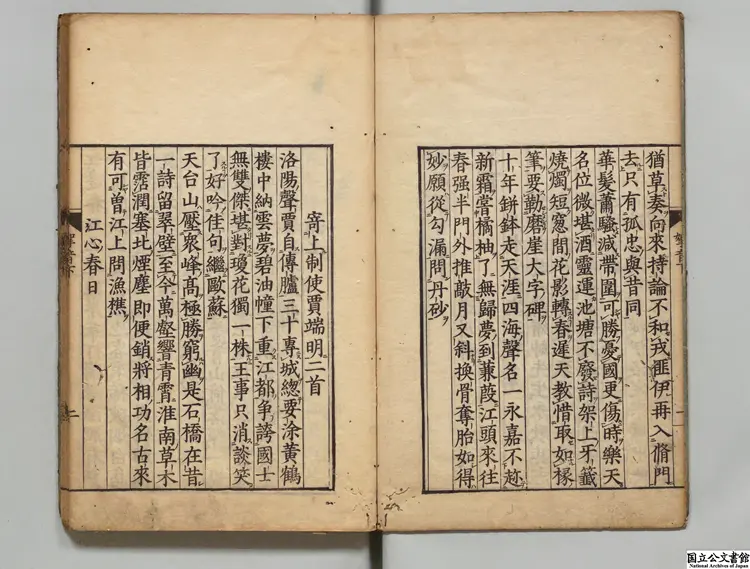 猶草奏向來持論不和戎匪伊再入脩門
去只有孤忠與昔同
華髮蕭騷減帶圍可勝憂國更傷時樂天
名位微堪酒靈運池塘不廢詩架上牙籤
燒燭短窓間花影轉春遲天教惜取如椽
筆要勒磨崖大字碑
十年缾鉢走天涯四海聲名一永嘉不趂
新霜嘗橘柚了無歸夢到蒹葭江頭來往
春强半門外推敲月又斜換骨奪胎如得
妙願從勾漏問丹砂
寄上制使賈端明二首
洛陽聲賈自傳臚三十專城緫要涂黃鶴
樓中納雲夢碧油幢下重江都爭誇國士
無雙傑堪對瓊花獨一株王事只消談笑
了好吟佳句繼歐蘇
天台山壓衆峰髙極勝窮幽是石橋在昔
一詩留翠壁至今萬壑響青霄淮南草木
皆霑潤塞北煙塵即便銷將相功名古來
有可曽江上問漁樵
江心春日
国立公文書館
National Archives of Japan